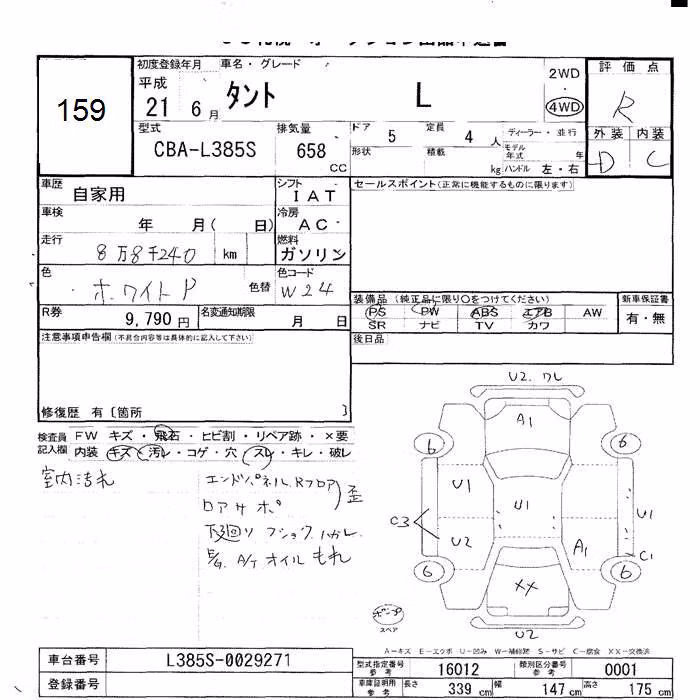 159
初度登録年月 車名・グレード
平成 21 6月 タント L
2WD
・
4WD
評価点
R
外装 内装
D C
型式 CBA-L385S
排気量 658 CC
ドア 5 定員 4 人
形状 積載 kg
ディーラー・並行
モデル年式 年
ハンドル 左・右
車歴 自家用
シフト IAT
車検 年 月( 日)
冷房 AC
走行 8万8千240 km
燃料 ガソリン
色 ホワイトP 色替
色コード W24
R券 9,790円 名変通知期限 月 日
セールスポイント(正常に機能するものに限ります)
装備品(純正品に限り○をつけてください)
PS PW ABS エアB AW
SR ナビ TV カワ
新車保証書
有・無
後日品
注意事項申告欄(不具合内容等は具体的に記入して下さい)
修復歴 有〔箇所 〕
検査員記入欄
FW キズ・飛石・ヒビ割・リペア跡・×要
内装 キズ・汚レ・コゲ・穴・スレ・キレ・破レ
室内汚れ
エンドパネル、Rフロア
ロアサポ
歪
下廻り
E/g、A/T オイルもれ
U2、ワレ
A1
6 6
U1 U1 U1
C3 U2 A1 C1
6 6
XX
U2
スペア
A-キズ E-エクボ U-凹み W-補修跡 S-サビ C-腐食 XX-交換済
車台番号 L385S-0029271
登録番号
型式指定番号 参考 16012 類別区分番号 参考 0001
車庫証明用 参考 長さ 339 cm 幅 147 cm 高さ 175 cm